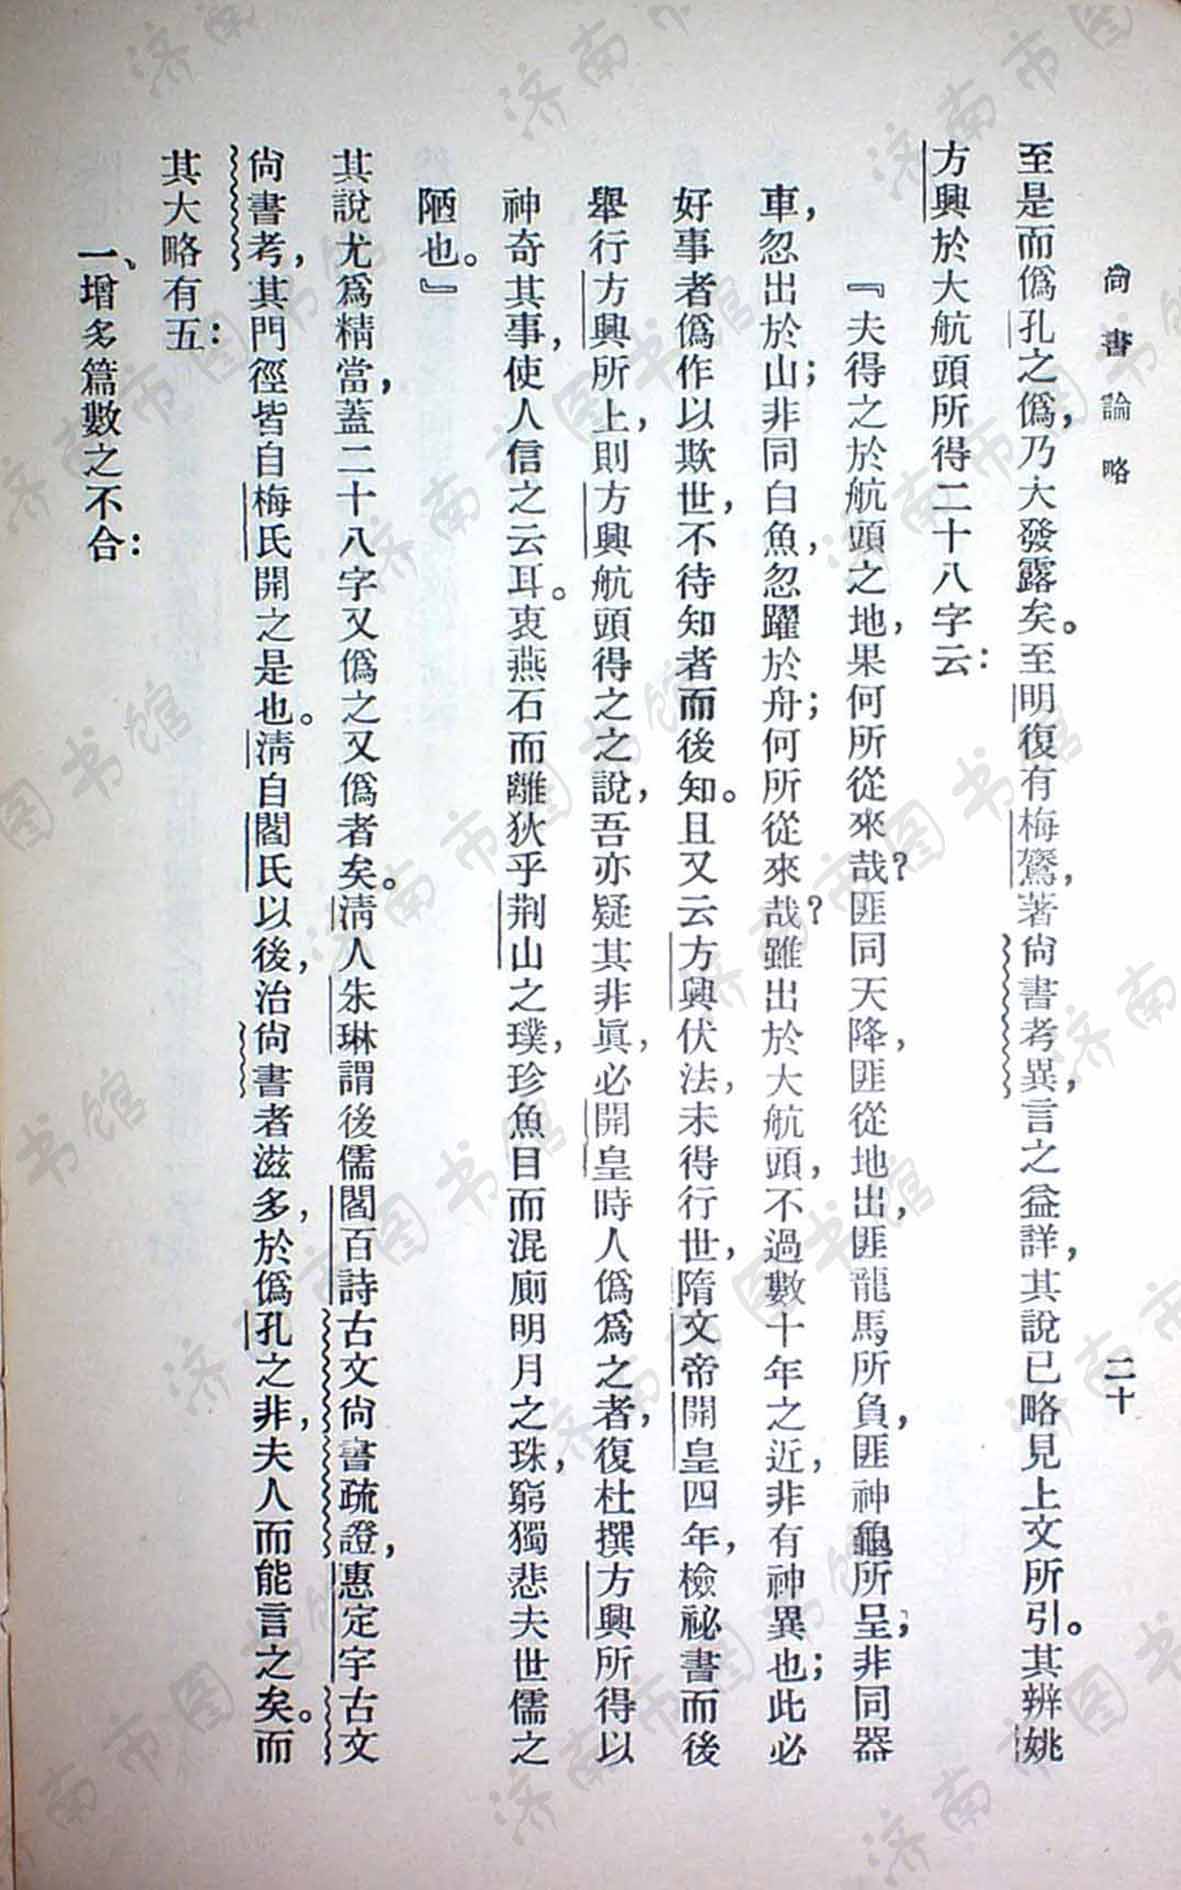 尙書論略
二十
至是而僞孔之僞，乃大發露矣。至明復有梅鷟，著尙書考異，言之益詳，其說已略見上文所引。其辨姚
方興於大航頭所得二十八字云：
『夫得之於航頭之地，果何所從來哉？匪同天降，匪從地出，匪龍馬所負，匪神龜所呈；非同器
車，忽出於山；非同白魚，忽躍於舟；何所從來哉？雖出於大航頭，不過數十年之近，非有神異也；此必
好事者僞作以欺世，不待知者而後知。且又云方興伏法，未得行世，隋文帝開皇四年，檢祕書而後
舉行方興所上，則方興航頭得之之說，吾亦疑其非眞，必開皇時人僞爲之者，復杜撰方興所得以
神奇其事，使人信之云耳。衷燕石而雜狄乎荆山之璞，珍魚目而混廁明月之珠，窮獨悲夫世儒之
陋也。』
其說尤爲精當，蓋二十八字又僞之又僞者矣。淸人朱琳謂後儒閻百詩古文尙書疏證，惠定宇古文
尙書考，其門徑皆自梅氏開之是也。淸自閻氏以後，治尙書者滋多，於僞孔之非，夫人而能言之矣。而
其大略有五：
一、增多篇數之不合：
济南市图书馆